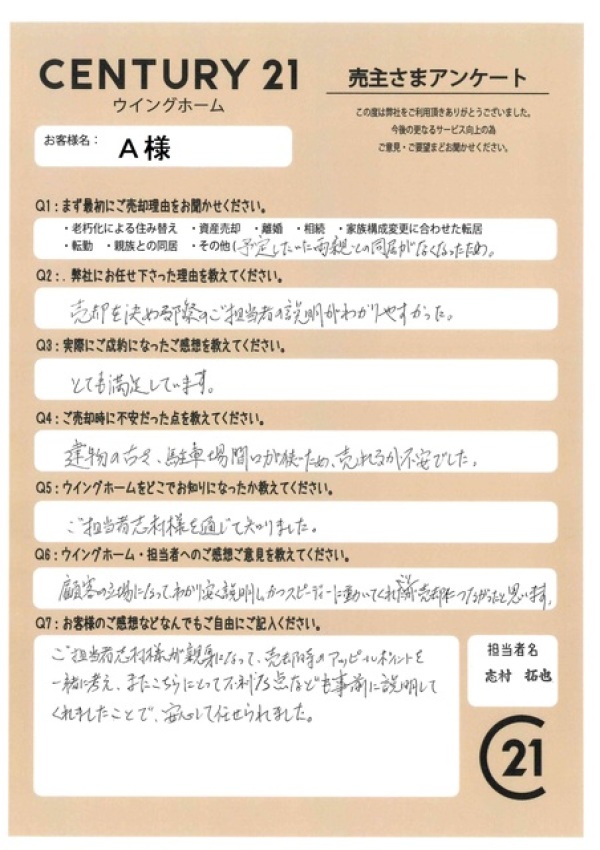 CENTURY 21
ウイングホーム
売主さまアンケート
この度は弊社をご利用頂きありがとうございました。
今後の更なるサービス向上の為
ご意見・ご要望をお聞かせください。
お客様名： A様
Q1：まず最初にご売却理由をお聞かせください。
・老朽化による住み替え ・資産売却 ・離婚 ・相続 ・家族構成変更に合わせた転居
・転勤 ・親族との同居 ・その他(予定していた両親との同居がなくなったため。
Q2：. 弊社にお任せ下さった理由を教えてください。
売却を決める際のご担当者の説明がわかりやすかった。
Q3：実際にご成約になったご感想を教えてください。
とても満足しています。
Q4：ご売却時に不安だった点を教えてください。
建物の古さ、駐車場間口が狭いため、売れるか不安でした。
Q5：ウイングホームをどこでお知りになったか教えてください。
ご担当者志村様を通じて知りました。
Q6：ウイングホーム・担当者へのご感想ご意見を教えてください。
顧客の立場になってわかり安く説明しかつスピーディーに動いてくれ 売却につながったと思います。
Q7：お客様のご感想などなんでもご自由にご記入ください。
ご担当者志村様が親身になって、売却時のアッピールポイントを
一緒に考え、またこちらにとって不利な点なども事前に説明して
くれましたことで、安心して任せられました。
担当者名
志村 拓也
C21